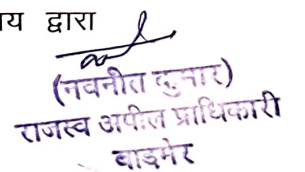 य द्वारा
(नवनीत कुमार)
राजस्व अपील प्राधिकारी
बाड़मेर